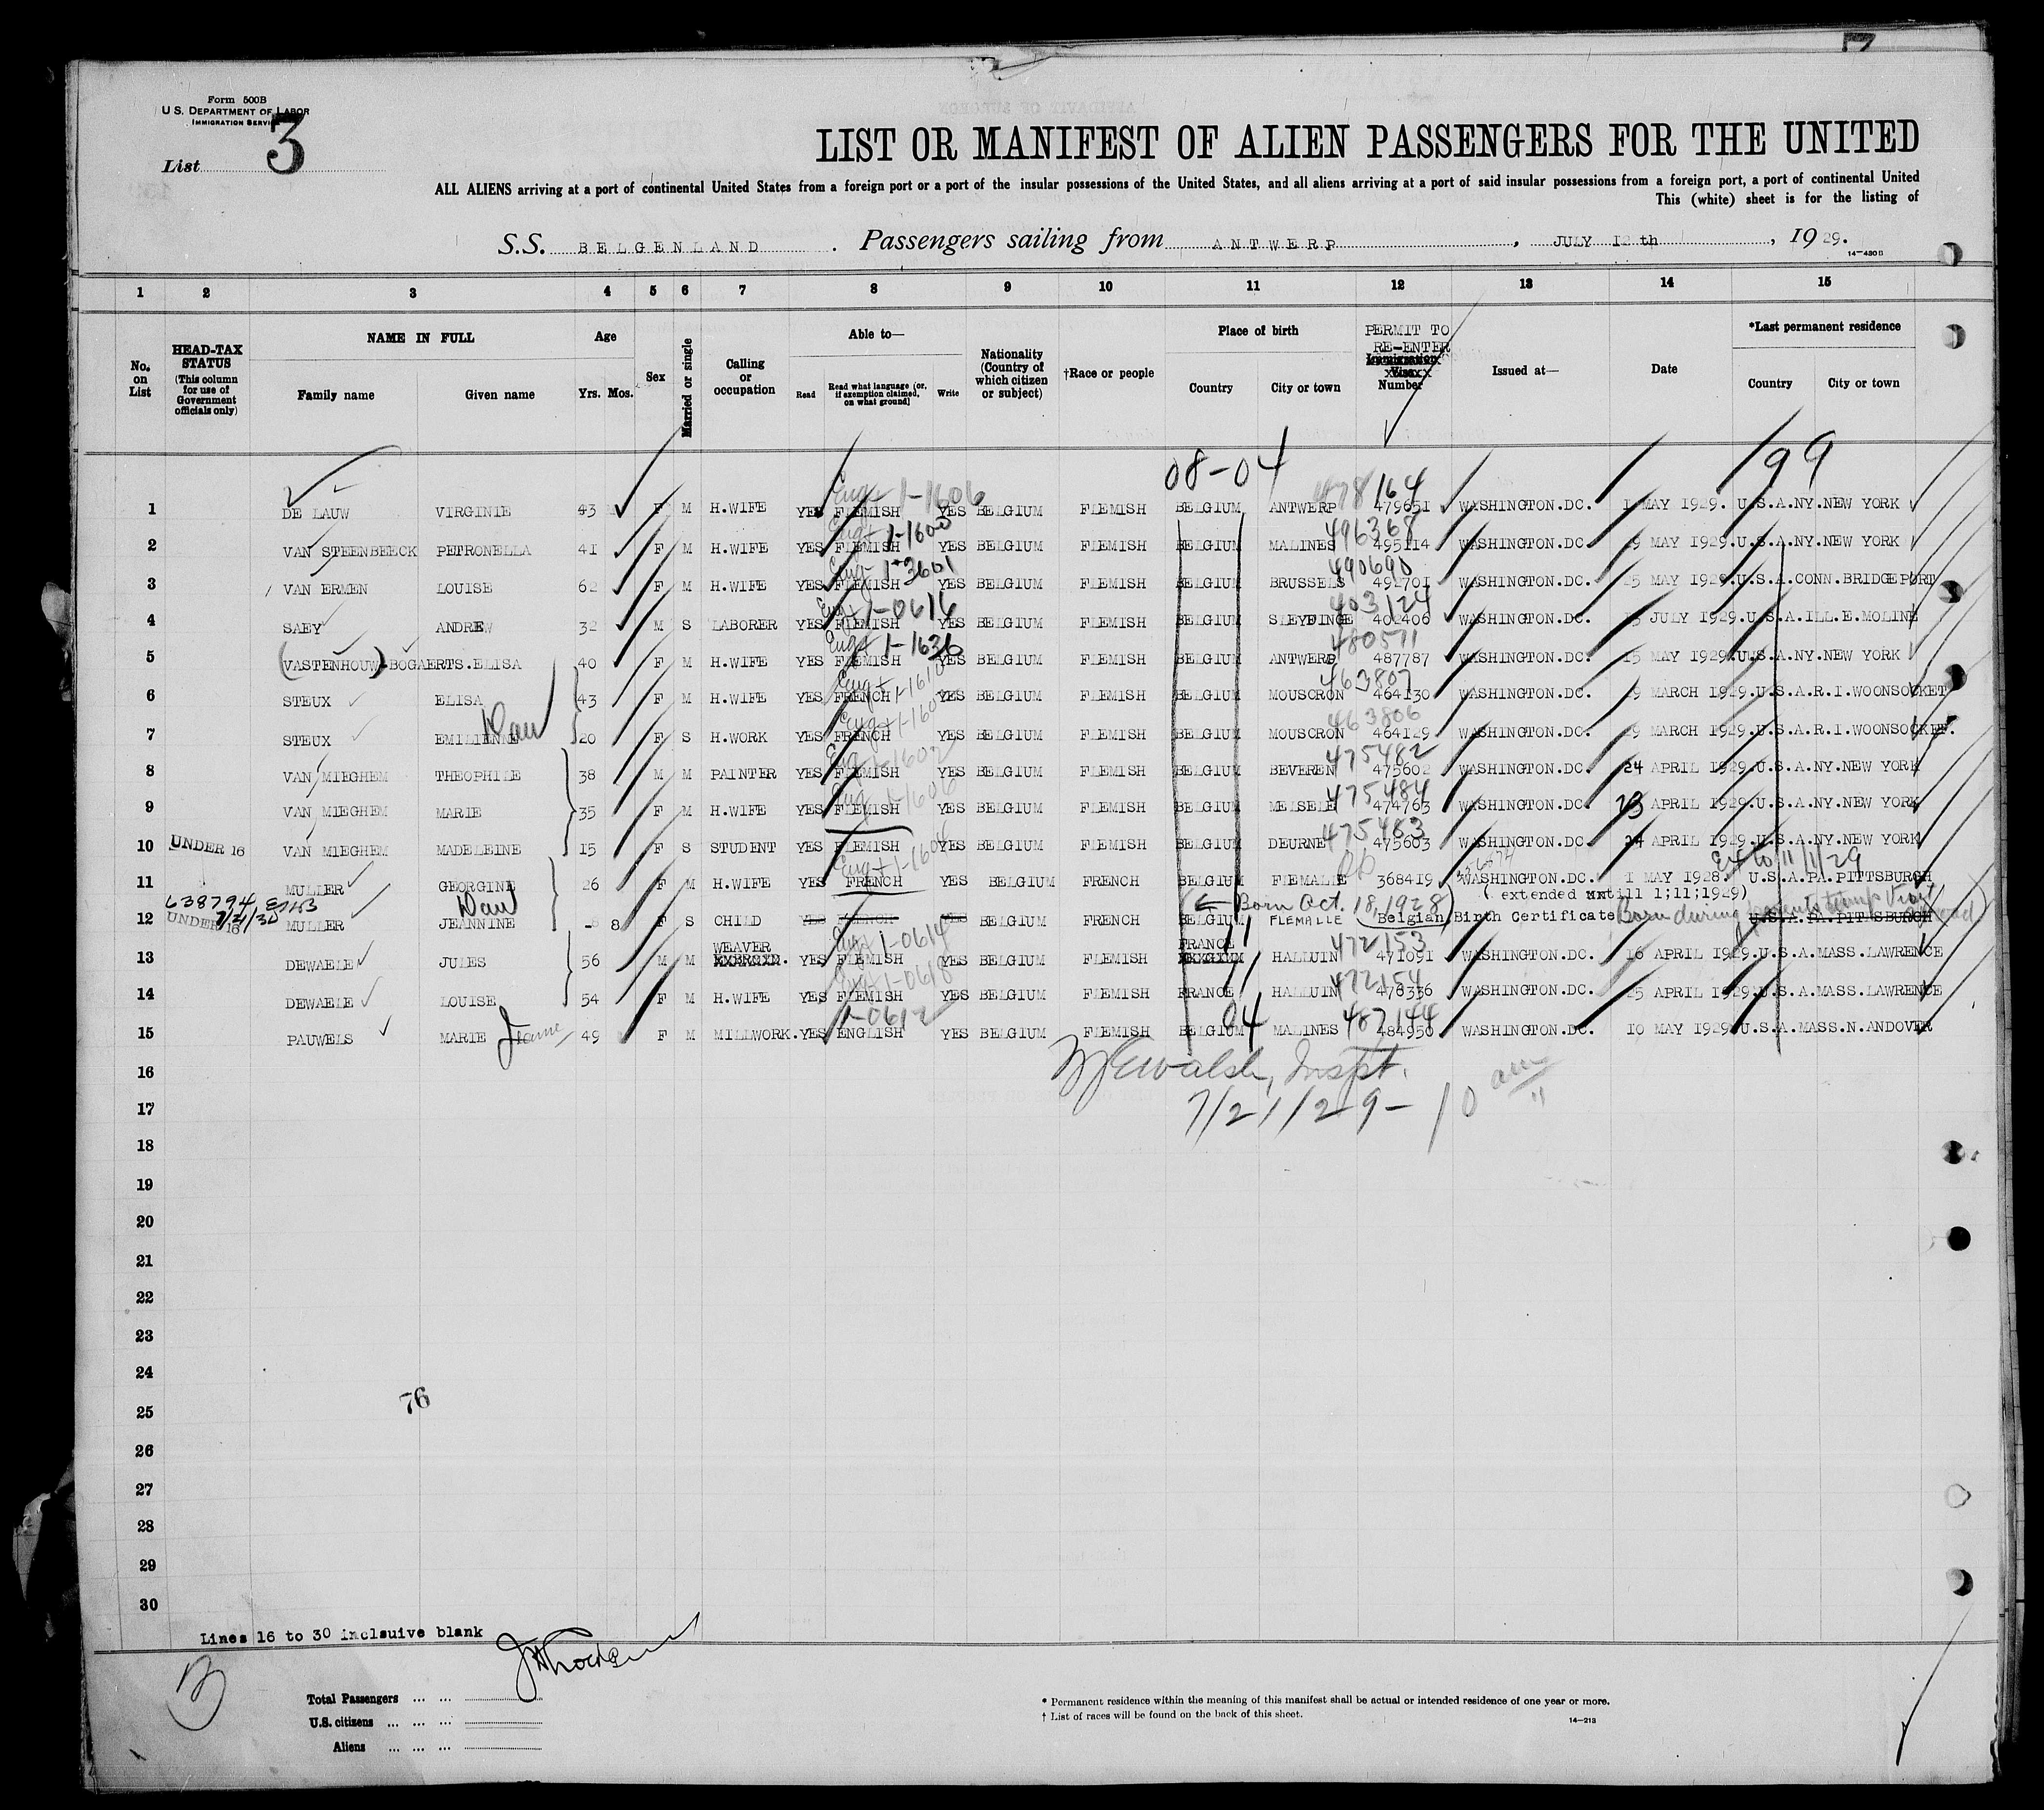 Form 500B
U. S. DEPARTMENT OF LABOR
IMMIGRATION SERVICE
List 3
LIST OR MANIFEST OF ALIEN PASSENGERS FOR THE UNITED
ALL ALIENS arriving at a port of continental United States from a foreign port or a port of the insular possessions of the United States, and all aliens arriving at a port of said insular possessions from a foreign port, a port of continental United
This (white) sheet is for the listing of
S.S. BELGENLAND . Passengers sailing from ANTWERP , JULY 12th , 1929.
14—430B
1 2 3 4 5 6 7 8 9 10 11 12 13 14 15
No. on List
HEAD-TAX STATUS (This column for use of Government officials only)
NAME IN FULL Family name Given name
Age Yrs. Mos.
Sex
Married or single
Calling or occupation
Able to— Read Read what language [or, if exemption claimed, on what ground] Write
Nationality (Country of which citizen or subject)
†Race or people
Place of birth Country City or town
PERMIT TO RE-ENTER Immigration Visa Number
Issued at—
Date
*Last permanent residence Country City or town
08-04 99
Eng + 1-1606 478164
1 DE LAUW VIRGINIE 43 F M H.WIFE YES FLEMISH YES BELGIUM FLEMISH BELGIUM ANTWERP 479651 WASHINGTON.DC. 1 MAY 1929. U.S.A.NY.NEW YORK
Eng + 1-1600 496368
2 VAN STEENBEECK PETRONELLA 41 F M H.WIFE YES FLEMISH YES BELGIUM FLEMISH BELGIUM MALINES 495114 WASHINGTON.DC. 29 MAY 1929.U.S.A.NY.NEW YORK
Eng + 1-3601 490690
3 VAN ERMEN LOUISE 62 F M H.WIFE YES FLEMISH YES BELGIUM FLEMISH BELGIUM BRUSSELS 492701 WASHINGTON.DC. 25 MAY 1929.U.S.A.CONN.BRIDGEPORT
Eng + 1-0616 403124
4 SAEY ANDREW 32 M S LABORER YES FLEMISH YES BELGIUM FLEMISH BELGIUM SLEYDINGE 402406 WASHINGTON.DC. JULY 1929.U.S.A.ILL.E.MOLINE
Eng + 1-1636 480571
5 (VASTENHOUW)-BOGAERTS.ELISA 40 F M H.WIFE YES FLEMISH YES BELGIUM FLEMISH BELGIUM ANTWERP 487787 WASHINGTON.DC. 15 MAY 1929.U.S.A.NY.NEW YORK
Eng + 1-1618 463807
6 STEUX ELISA 43 F M H.WIFE YES FRENCH YES BELGIUM FLEMISH BELGIUM MOUSCRON 464130 WASHINGTON.DC. 19 MARCH 1929.U.S.A.R.I.WOONSOCKET
Dau Eng + 463806
7 STEUX EMILIENNE 20 F S H.WORK YES FRENCH YES BELGIUM FLEMISH BELGIUM MOUSCRON 464129 WASHINGTON.DC. 19 MARCH 1929.U.S.A.R.I.WOONSOCKET.
Eng 1-1602 475482
8 VAN MIEGHEM THEOPHILE 38 M M PAINTER YES FLEMISH YES BELGIUM FLEMISH BELGIUM BEVEREN 475602 WASHINGTON.DC. 24 APRIL 1929.U.S.A.NY.NEW YORK
Eng 1-1606 475484
9 VAN MIEGHEM MARIE 35 F M H.WIFE YES FLEMISH YES BELGIUM FLEMISH BELGIUM MELSELE 474763 WASHINGTON.DC. 23 APRIL 1929.U.S.A.NY.NEW YORK
475483
10 UNDER 16 VAN MIEGHEM MADELEINE 15 F S STUDENT YES FLEMISH YES BELGIUM FLEMISH BELGIUM DEURNE 475603 WASHINGTON.DC. 24 APRIL 1929.U.S.A.NY.NEW YORK
Eng + 1-1604 Ext to 11/1/29
11 MULLER GEORGINE 26 F M H.WIFE YES FRENCH YES BELGIUM FRENCH BELGIUM FLEMALLE 368419 WASHINGTON.DC. 1 MAY 1928. U.S.A.PA.PITTSBURGH
( extended untill 1;11;1929)
638794, 7/21/30 Dau ← Born Oct. 18, 1928
12 UNDER 16 MULLER JEANNINE - 8 F S CHILD YES FRENCH YES BELGIUM FRENCH BELGIUM FLEMALLE (Belgian Birth Certificate Born during parents temp visit abroad) U.S.A.PA.PITTSBURGH
WEAVER Eng + 1-0614 FRANCE 11 472153
13 DEWAELE JULES 56 M M YES FLEMISH YES BELGIUM FLEMISH HALLUIN 471091 WASHINGTON.DC. 16 APRIL 1929.U.S.A.MASS.LAWRENCE
Eng + 1-0618 11 472154
14 DEWAELE LOUISE 54 F M H.WIFE YES FLEMISH YES BELGIUM FLEMISH FRANCE HALLUIN 478336 WASHINGTON.DC. 25 APRIL 1929.U.S.A.MASS.LAWRENCE
1-0612 04 487144
15 PAUWELS MARIE Jeanne 49 F M MILLWORK. YES ENGLISH YES BELGIUM FLEMISH BELGIUM MALINES 484950 WASHINGTON.DC. 10 MAY 1929.U.S.A.MASS.N.ANDOVER
16 Walsh, Inspt.
17 7/21/29 - 10 am
18
19
20
21
22
23
24
76
25
26
27
28
29
30
Lines 16 to 30 inclsuive blank
Total Passengers ... ...
U.S. citizens ... ... ...
Aliens ... ... ...
* Permanent residence within the meaning of this manifest shall be actual or intended residence of one year or more.
† List of races will be found on the back of this sheet.
14—213